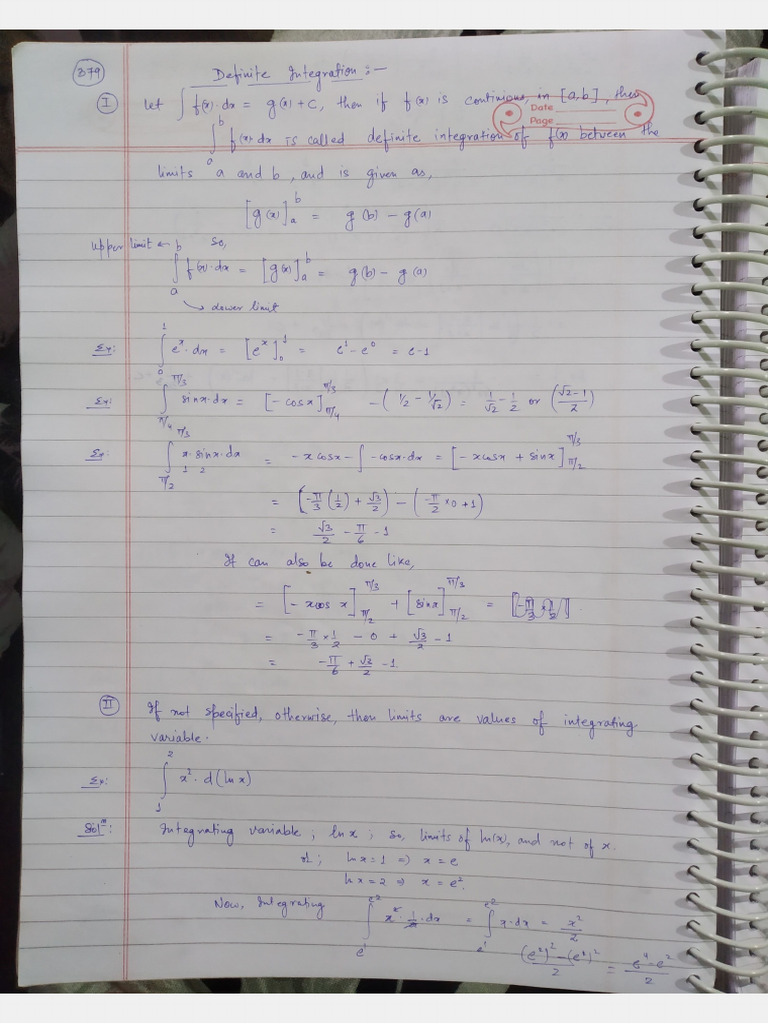 379
Definite Integration :-
I Let ∫ f(x)·dx = g(x) + C, then if f(x) is continious in [a,b], then
Date
Page
∫ₐᵇ f(x)·dx is called definite integration of f(x) between the
limits a and b, and is given as,
[g(x)]ₐᵇ = g(b) – g(a)
upper limit ← b so,
∫ₐ f(x)·dx = [g(x)]ₐᵇ = g(b) – g(a)
→ Lower limit
Ex: ∫₀¹ eˣ·dx = [eˣ]₀¹ = e¹ – e⁰ = e-1
Ex: ∫_{π/4}^{π/3} sinx·dx = [-cosx]_{π/4}^{π/3} -(1/2 - 1/√2) = 1/√2 - 1/2 or (√2-1/2)
Ex: ∫_{π/2}^{π/3} x·sinx·dx = -xcosx - ∫-cosx·dx = [-xcosx + sinx]_{π/2}^{π/3}
1 2
= (-π/3 (1/2) + √3/2) - (-π/2 × 0 + 1)
= √3/2 - π/6 - 1
It can also be done like,
= [-xcos x]_{π/2}^{π/3} + [sinx]_{π/2}^{π/3} =
= -π/3 × 1/2 - 0 + √3/2 - 1
= -π/6 + √3/2 - 1
II If not specified, otherwise, then limits are values of integrating
variable.
Ex: ∫₁² x²·d(lnx)
Solⁿ: Integrating variable ; lnx ; so, limits of ln(x), and not of x.
or ; lnx = 1 ⇒ x = e
lnx = 2 ⇒ x = e².
Now, Integrating ∫_{e¹}^{e²} x²·1/x·dx = ∫_{e¹}^{e²} x·dx = x²/2
(e²)² - (e¹)²/2 = e⁴-e²/2